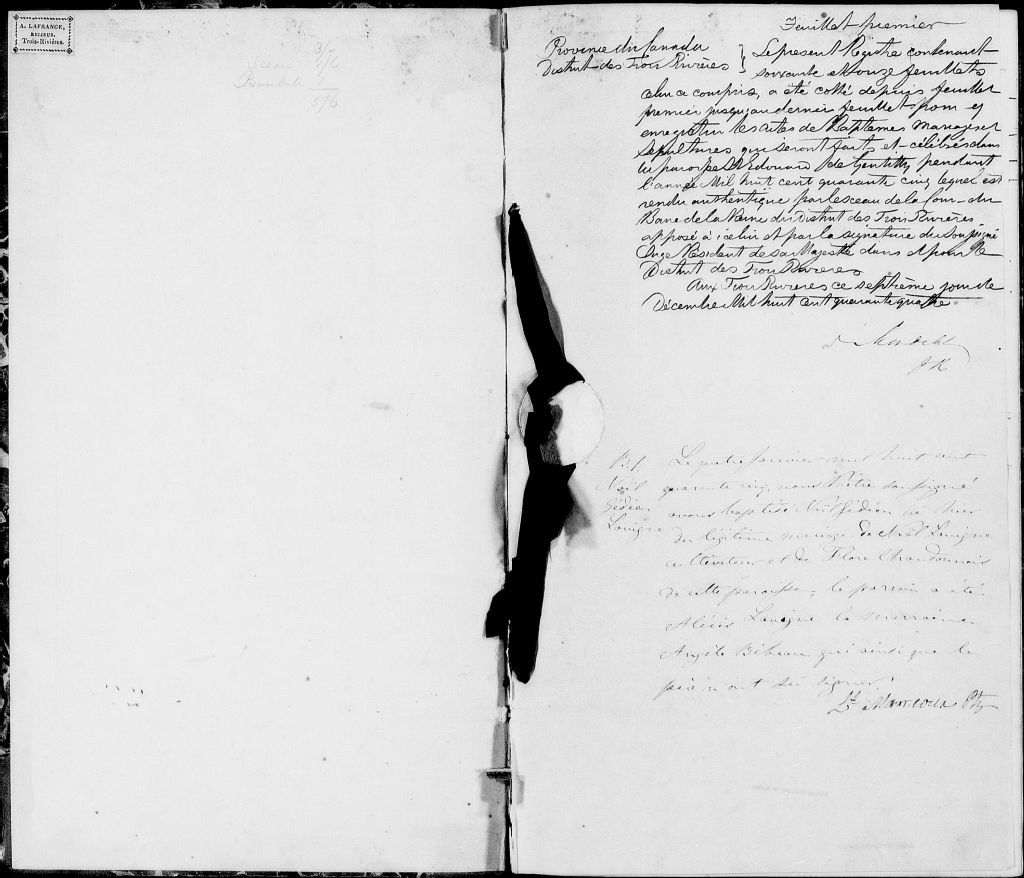 A. LAFRANCE,
RELIEUR,
Trois-Rivières.
3/6
5/6
Feuillet premier
Province du Canada
District des Trois Rivières
Le present Registre contenant
soixante et onze feuillets
celui ci compris, a été cotté depuis feuillet
premier jusqu'au dernier feuillet pour y
enregistrer les actes de Baptemes Mariages et
Sepultures qui seront faits et célébrés dans
la paroisse St Edouard de Gentilly pendant
l'année Mil huit cent quarante cinq lequel est
rendu authentique par le sceau de la Cour du
Banc de la Reine du District des Trois Rivières
apposé à icelui et par la signature du Soussigné
Juge Résident de sa Majesté dans et pour le
District des Trois Rivieres
Aux Trois Rivieres ce septième jour de
Décembre Mil huit cent quarante quatre
B 1.
Noël
Gédéon
Lavigne
Le quatre Janvier mil huit cent
quarante cinq, nous Prêtre soussigné
avons baptisé Noël Gédéon né hier
du légitime mariage de Noël Lavigne
cultivateur et de Flore Chandonnais
de cette paroisse; le parrain a été
Alexis Lavigne la marraine
Angèle Bibeau qui ainsi que le
père n'ont su signer.
Lt Marcoux Ptre